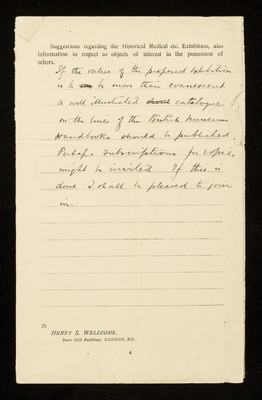 Suggestions regarding the Historical Medical etc. Exhibition, also
information in respect to objects of interest in the possession of
others.
If the value of the proposed Exhibition
is to be more than evanescent
a well illustrated catalogue
on the lines of the British Museum
Handbooks should be published.
Perhaps subscriptions for copies
might be invited. If this is
done I shall be pleased to join
in.
To
HENRY S. WELLCOME,
Snow Hill Buildings, LONDON, E.C.
4